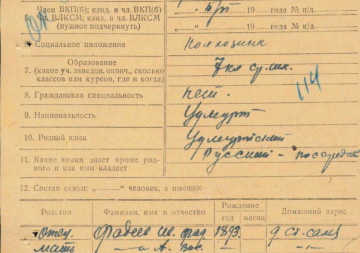 Член ВКП(б); канд. и чл. ВКП(б) 19 года № п/д.
чл. ВЛКСМ; канд. и чл. ВЛКСМ
(нужное подчеркнуть) 19 года № к/д.
6. Социальное положение колхозник
Образование
7. (какое уч. заведен. оконч., сколько 7 кл ср. шк.
классов или курсов, где и когда) 114
8. Гражданская специальность нет.
9. Национальность Удмурт
10. Родной язык Удмуртский
11. Какие языки знает кроме род- Русский -
ного и как ими владеет
12. Состав семьи: „——“ человек, а именно:
Родство Фамилия, имя и отчество Рождение Домашний адрес
год месяц
отец Фадеев 1893
мать